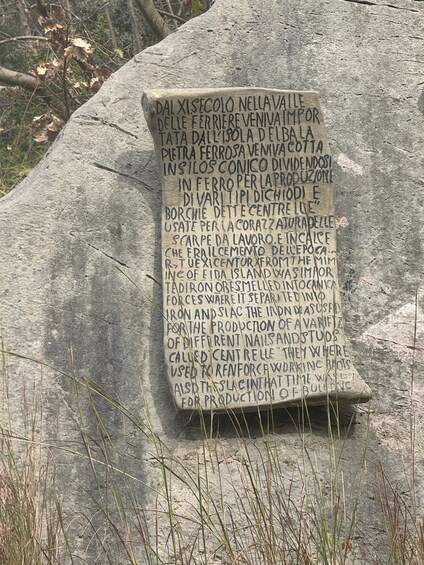 DAL XI SECOLO NELLA VALLE
DELLE FERRIERE VENIVA IMPOR
TATA DALL'ISOLA D'ELBA LA
PIETRA FERROSA VENIVA COTTA
IN SILOS CONICO DIVIDENDOSI
IN FERRO PER LA PRODUZIONE
DI VARI TIPI DI CHIODI E
BORCHIE DETTE CENTRELLE"
USATE PER LA CORAZZATURA DELLE
SCARPE DA LAVORO, E IN CALCE
CHE ERA IL CEMENTO DELL'EPOCA
CENTURY FROM THE MIM
INC OF ELBA ISLAND WAS IMPOR
TAD IRON ORE SMELLED INTO CANICA
FORCES WARE IT SEPARATED INTO
IRON AND SLAC THE IRON WAS USED
FOR THE PRODUCTION OF A VARIETZ
OF DIFFERENT NAILS AND STUDS
CALLED CENTRELLE THEY WHERE
USED TO RENFORCE WORKING BOOTS
ALSO THE SLAC IN THAT TIME
FOR PRODUCTION OF